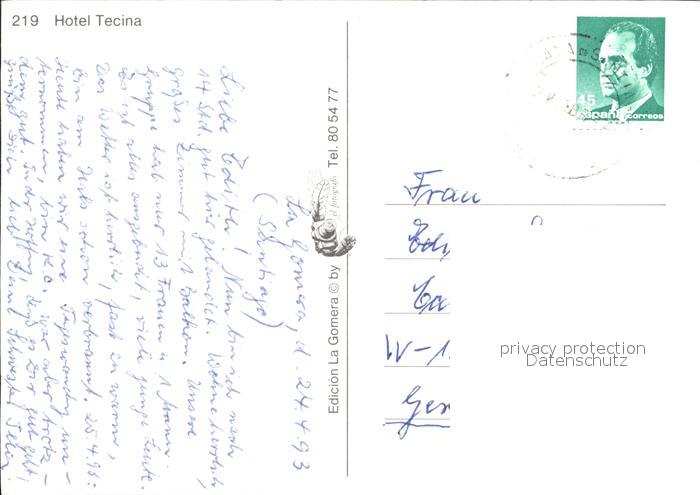 219 Hotel Tecina
La Gomera, d. 24.4.93
(Santiago)
Liebe Edith! Nun bin ich nach
14 Std. gut hier gelandet. Wohne herrlich,
großes Zimmer mit Balkon. Unsere
Gruppe hat nur 13 Frauen u. 1 Mann.
Es ist alles ausgebucht, viele junge Leute.
Das Wetter ist herrlich, fast zu warm,
bin am schon verbrannt. 25.4.93:
Heute haben wir eine Tageswanderung un-
ternommen, war aber trotz-
dem gut. In der Hoffnung, daß es Dir gut geht,
grüßt Dich lieb Deine
Edición La Gomera © by el fotógrafo Tel. 80 54 77
45
España correos
Frau
Edi
Ca
W-1
Ger
privacy protection
Datenschutz